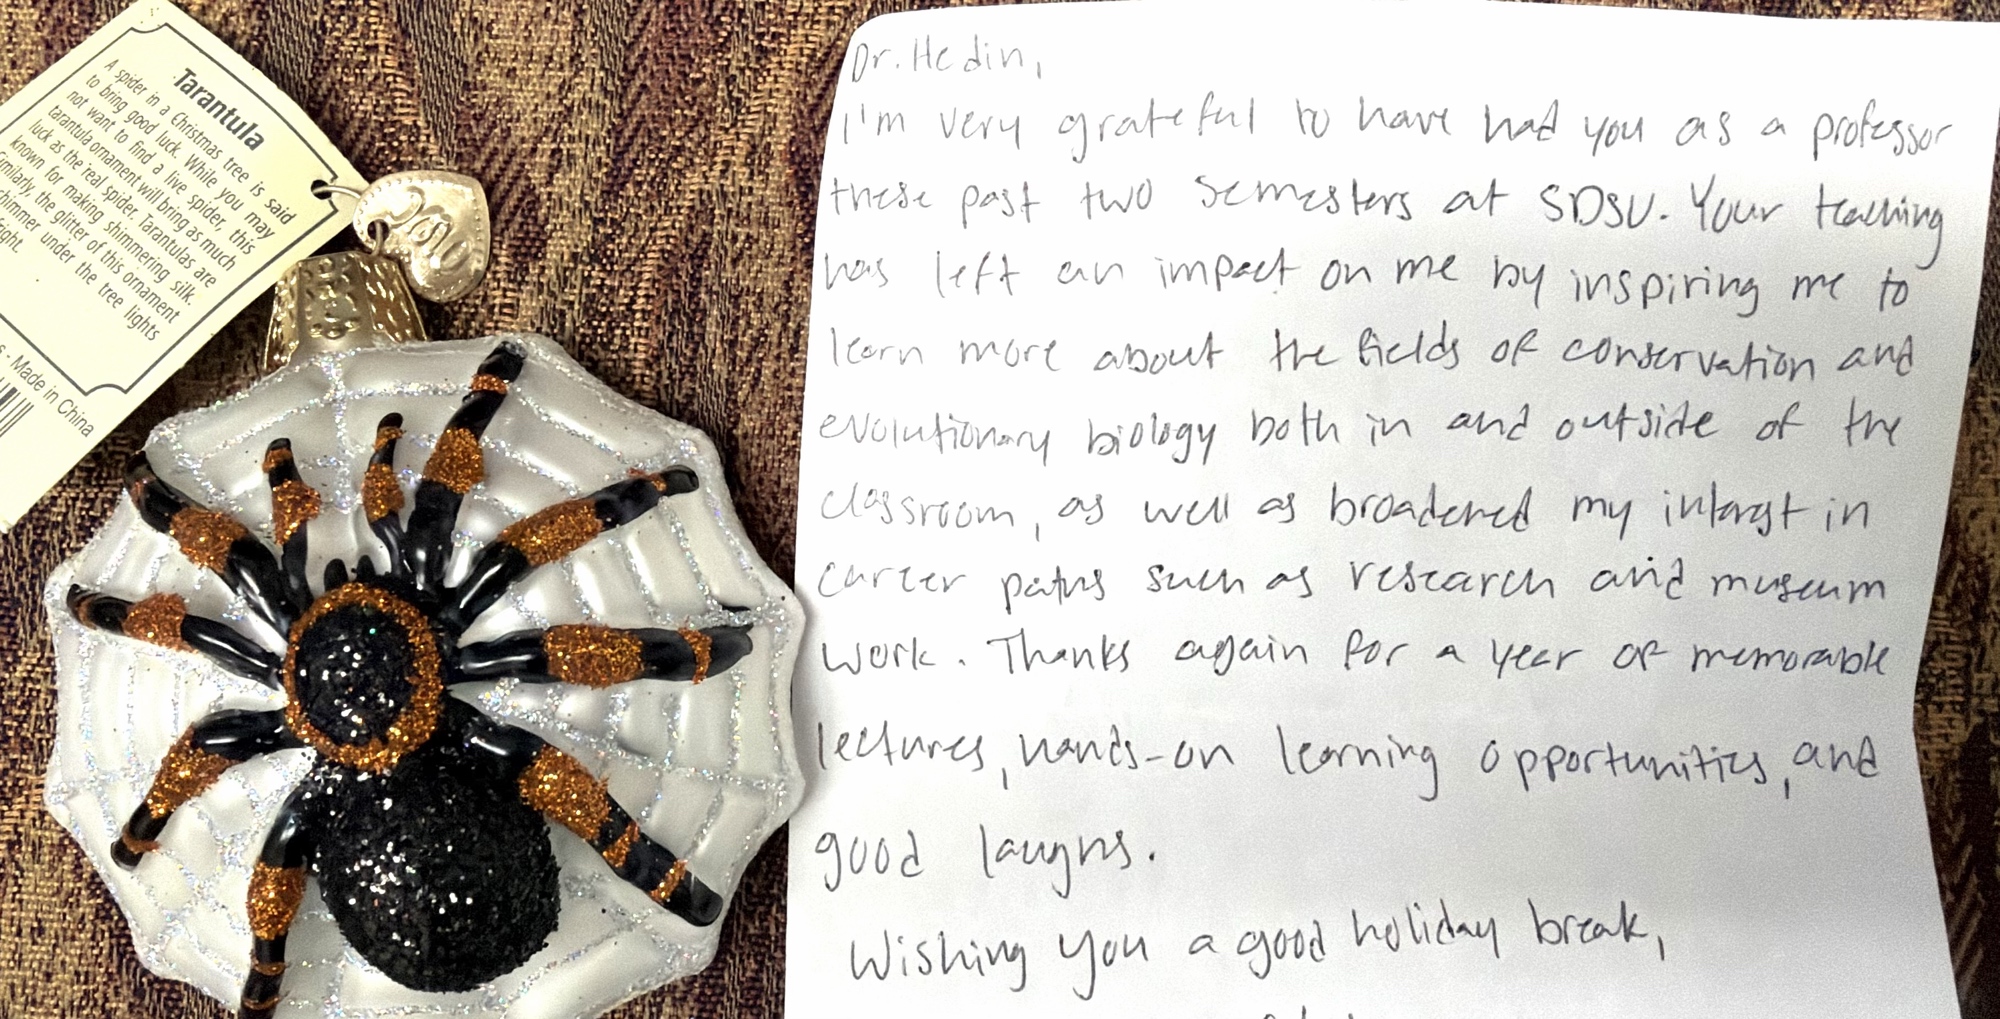 Tarantula
A spider in a Christmas tree is said
to bring good luck. While you may
not want to find a live spider, this
tarantula ornament will bring as much
luck as the real spider. Tarantulas are
known for making shimmering silk.
imilarly, the glitter of this ornament
himmer under the tree lights
right.
s - Made in China
Dr. Hedin,
I'm very grateful to have had you as a professor
these past two semesters at SDSU. Your teaching
has left an impact on me by inspiring me to
learn more about the fields of conservation and
evolutionary biology both in and outside of the
classroom, as well as broadened my interest in
career paths such as research and museum
work. Thanks again for a year of memorable
lectures, hands-on learning opportunities, and
good laughs.
Wishing you a good holiday break,